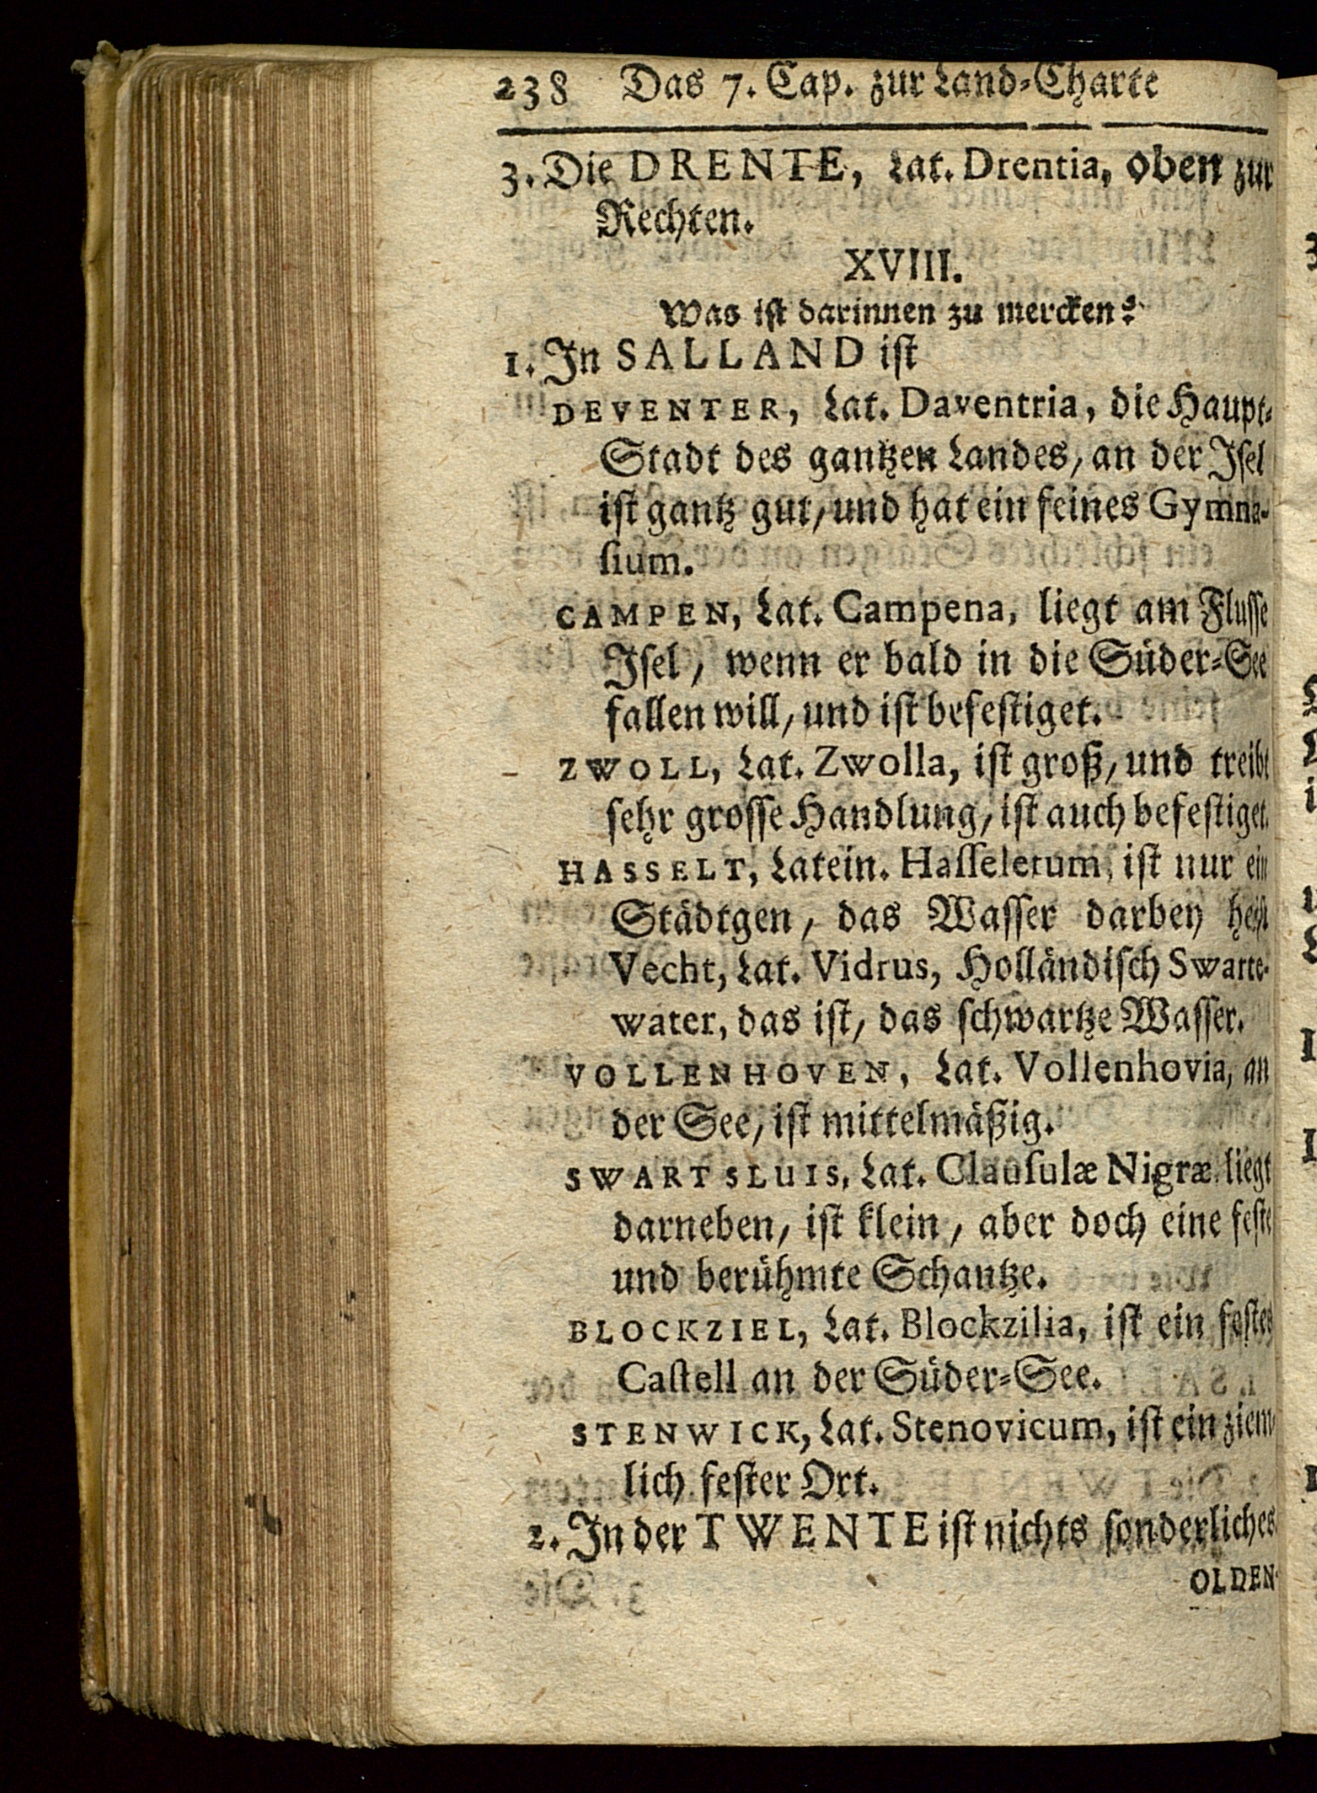 238 Das 7. Cap. zur Land-Charte
3. Die DRENTE, Lat. Drentia, oben zur
Rechten.
XVIII.
Was ist darinnen zu mercken?
1. In SALLAND ist
DEVENTER, Lat. Daventria, die Haupt-
Stadt des gantzen Landes, an der Isel
ist gantz gut, und hat ein feines Gymna-
sium.
CAMPEN, Lat. Campena, liegt am Flusse
Isel, wenn er bald in die Süder-See
fallen will, und ist befestiget.
ZWOLL, Lat. Zwolla, ist groß, und treibt
sehr grosse Handlung, ist auch befestiget.
HASSELT, Latein. Hasseletum, ist nur ein
Städtgen, das Wasser darbey heist
Vecht, Lat. Vidrus, Holländisch Swarte-
water, das ist, das schwartze Wasser.
VOLLENHOVEN, Lat. Vollenhovia, an
der See, ist mittelmäßig.
SWARTSLUIS, Lat. Clausulæ Nigræ liegt
darneben, ist klein, aber doch eine feste
und berühmte Schantze.
BLOCKZIEL, Lat. Blockzilia, ist ein festes
Castell an der Süder-See.
STENWICK, Lat. Stenovicum, ist ein ziem-
lich fester Ort.
2. In der TWENTE ist nichts sonderliches
OLDEN-